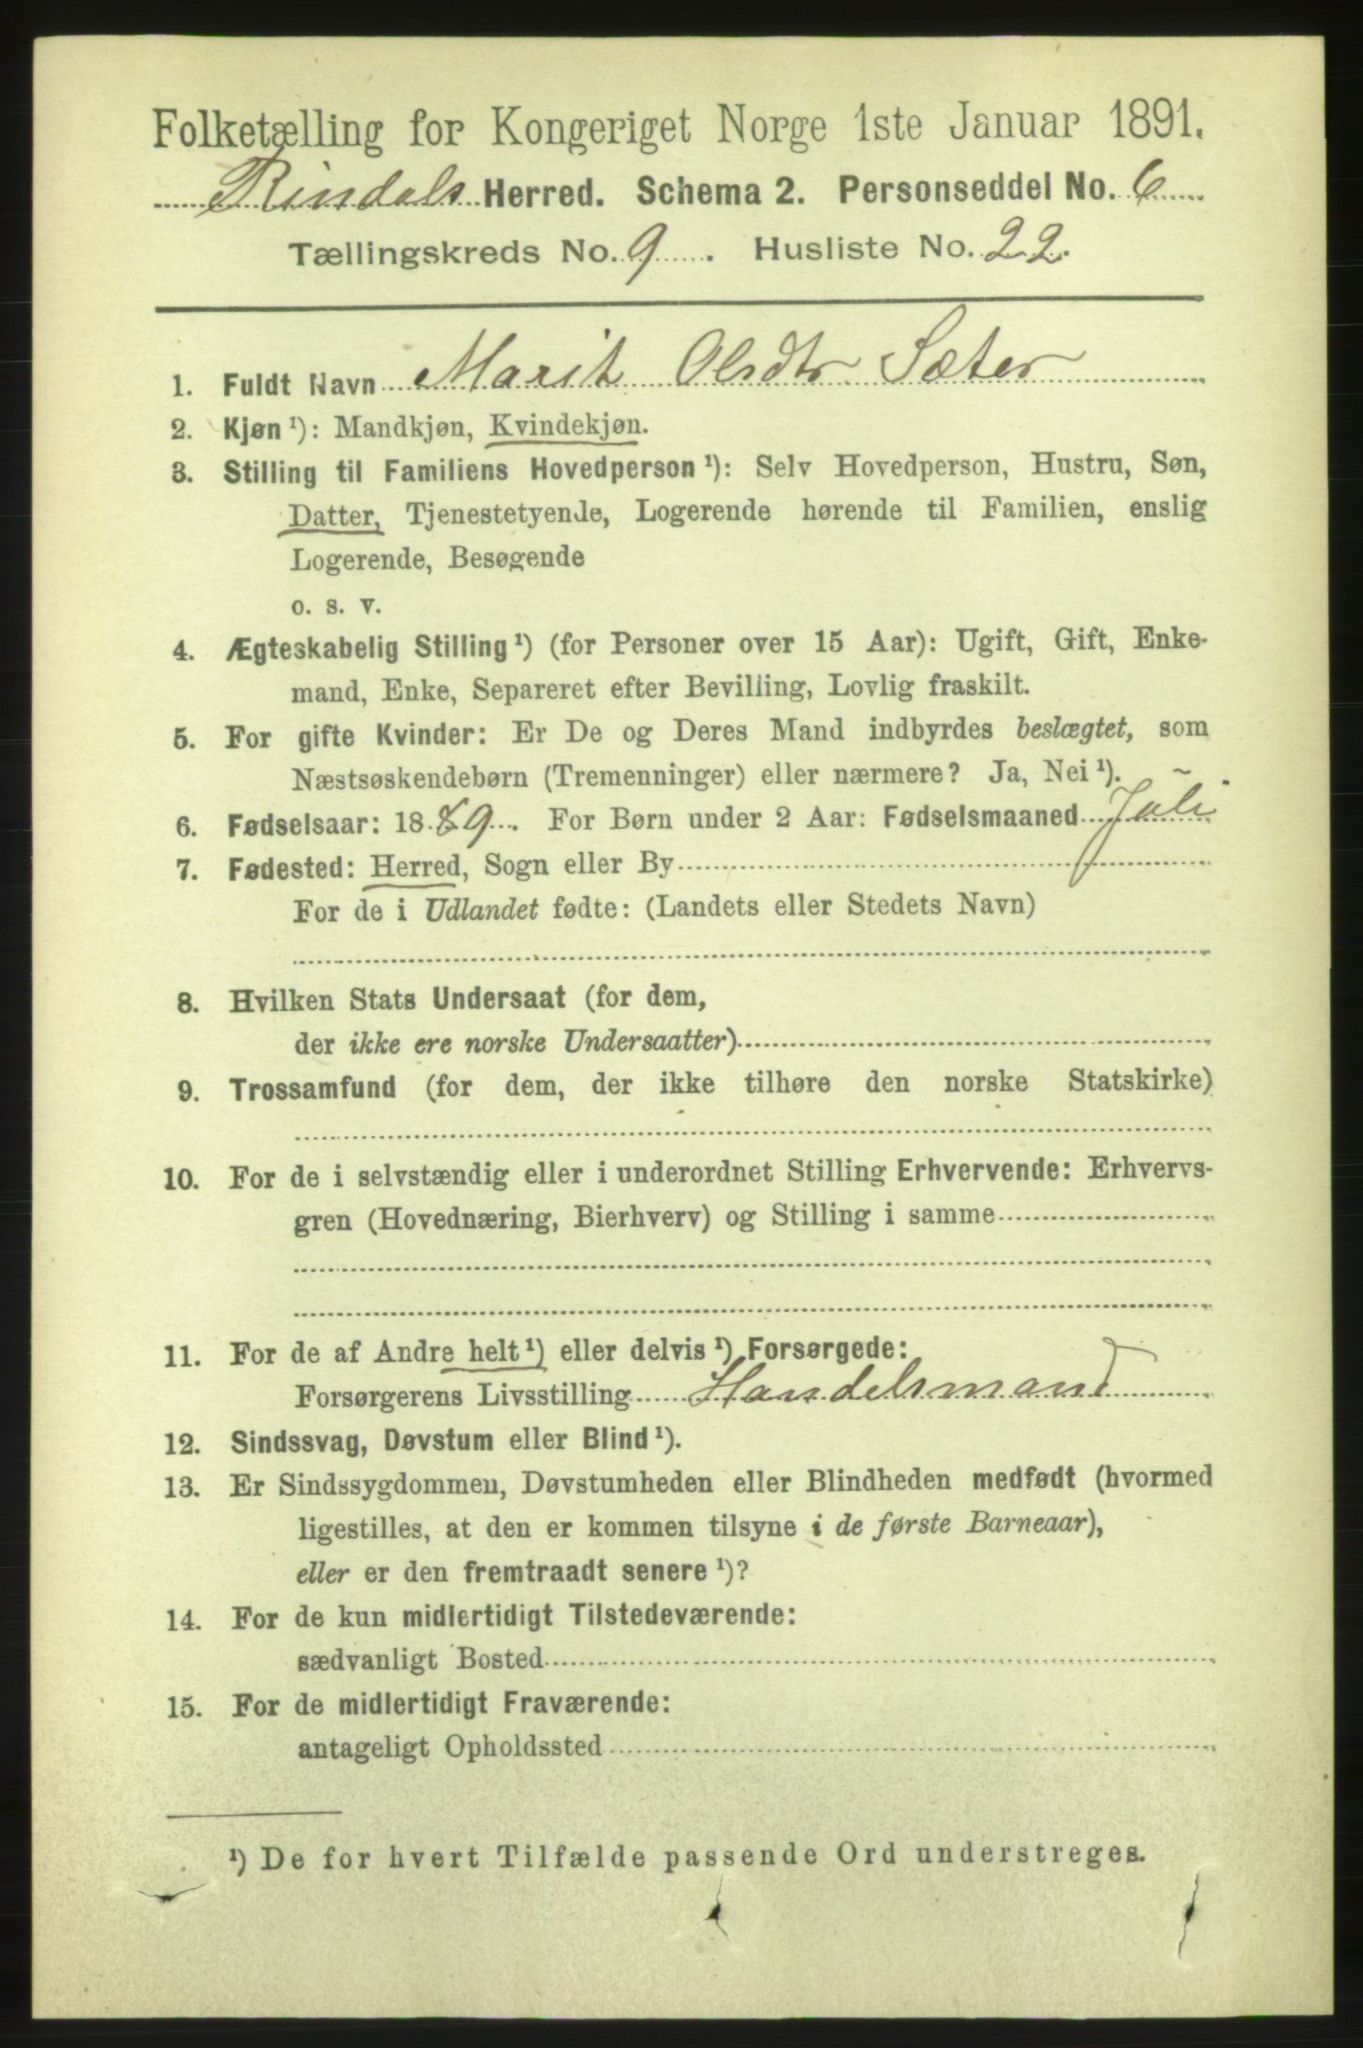 Folketælling for Kongeriget Norge 1ste Januar 1891.
Rindals Herred. Schema 2. Personseddel No. 6
Tællingskreds No. 9. Husliste No. 22.
1. Fuldt Navn Marit Olsdtr Sæter
2. Kjøn ¹): Mandkjøn, Kvindekjøn.
3. Stilling til Familiens Hovedperson ¹): Selv Hovedperson, Hustru, Søn,
Datter, Tjenestetyende, Logerende hørende til Familien, enslig
Logerende, Besøgende
o. s. v.
4. Ægteskabelig Stilling ¹) (for Personer over 15 Aar): Ugift, Gift, Enke-
mand, Enke, Separeret efter Bevilling, Lovlig fraskilt.
5. For gifte Kvinder: Er De og Deres Mand indbyrdes beslægtet, som
Næstsøskendebørn (Tremenninger) eller nærmere? Ja, Nei ¹).
6. Fødselsaar: 1889. For Børn under 2 Aar: Fødselsmaaned Juli
7. Fødested: Herred, Sogn eller By
For de i Udlandet fødte: (Landets eller Stedets Navn)
8. Hvilken Stats Undersaat (for dem,
der ikke ere norske Undersaatter)
9. Trossamfund (for dem, der ikke tilhøre den norske Statskirke)
10. For de i selvstændig eller i underordnet Stilling Erhvervende: Erhvervs-
gren (Hovednæring, Bierhverv) og Stilling i samme
11. For de af Andre helt ¹) eller delvis ¹) Forsørgede:
Forsørgerens Livsstilling Handelsmand
12. Sindssvag, Døvstum eller Blind ¹).
13. Er Sindssygdommen, Døvstumheden eller Blindheden medfødt (hvormed
ligestilles, at den er kommen tilsyne i de første Barneaar),
eller er den fremtraadt senere ¹)?
14. For de kun midlertidigt Tilstedeværende:
sædvanligt Bosted
15. For de midlertidigt Fraværende:
antageligt Opholdssted
¹) De for hvert Tilfælde passende Ord understreges.